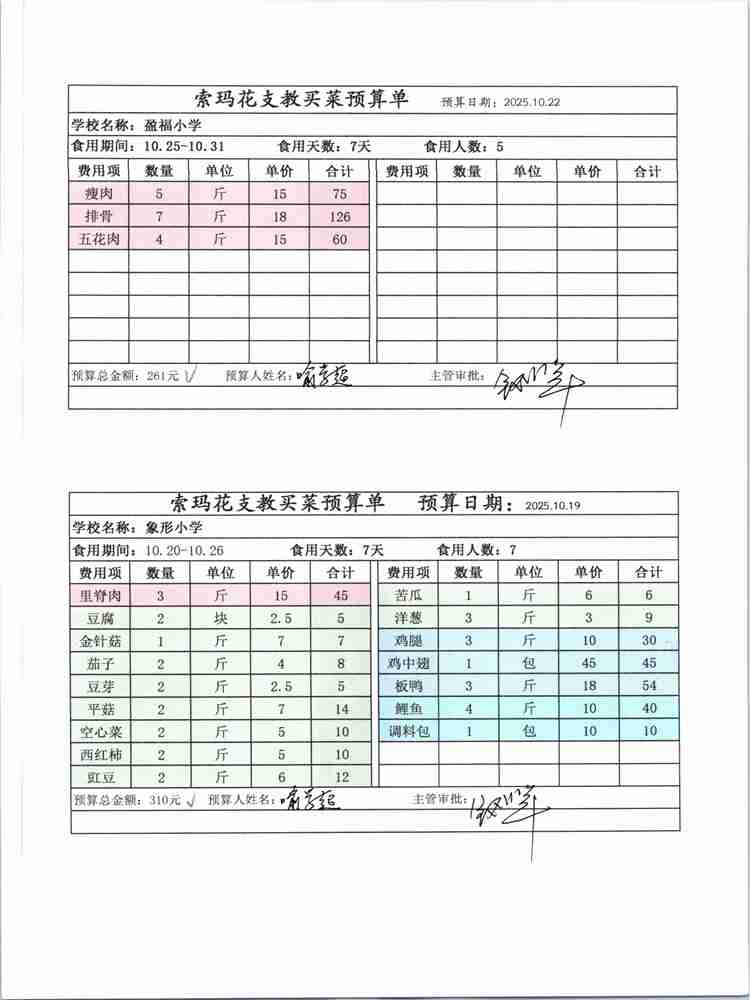 索玛花支教买菜预算单 预算日期：2025.10.22
学校名称：盈福小学
食用期间：10.25-10.31 食用天数：7天 食用人数：5
费用项 数量 单位 单价 合计 费用项 数量 单位 单价 合计
瘦肉 5 斤 15 75
排骨 7 斤 18 126
五花肉 4 斤 15 60
预算总金额：261元 √ 预算人姓名： 主管审批：
索玛花支教买菜预算单 预算日期：2025.10.19
学校名称：象形小学
食用期间：10.20-10.26 食用天数：7天 食用人数：7
费用项 数量 单位 单价 合计 费用项 数量 单位 单价 合计
里脊肉 3 斤 15 45 苦瓜 1 斤 6 6
豆腐 2 块 2.5 5 洋葱 3 斤 3 9
金针菇 1 斤 7 7 鸡腿 3 斤 10 30
茄子 2 斤 4 8 鸡中翅 1 包 45 45
豆芽 2 斤 2.5 5 板鸭 3 斤 18 54
平菇 2 斤 7 14 鲤鱼 4 斤 10 40
空心菜 2 斤 5 10 调料包 1 包 10 10
西红柿 2 斤 5 10
豇豆 2 斤 6 12
预算总金额：310元 √ 预算人姓名： 主管审批：